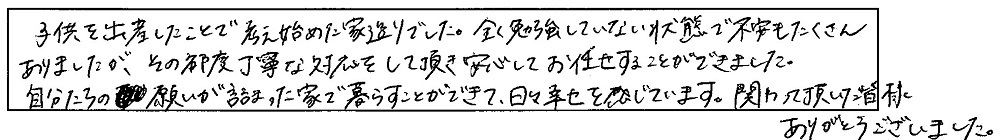 子供を出産したことで考え始めた家造りでした。全く勉強していない状態で不安もたくさん
ありましたが、その都度丁寧な対応をして頂き安心してお任せすることができました。
自分たちの願いが詰まった家で暮らすことができて、日々幸せを感じています。関わって頂いた皆様に
ありがとうございました。